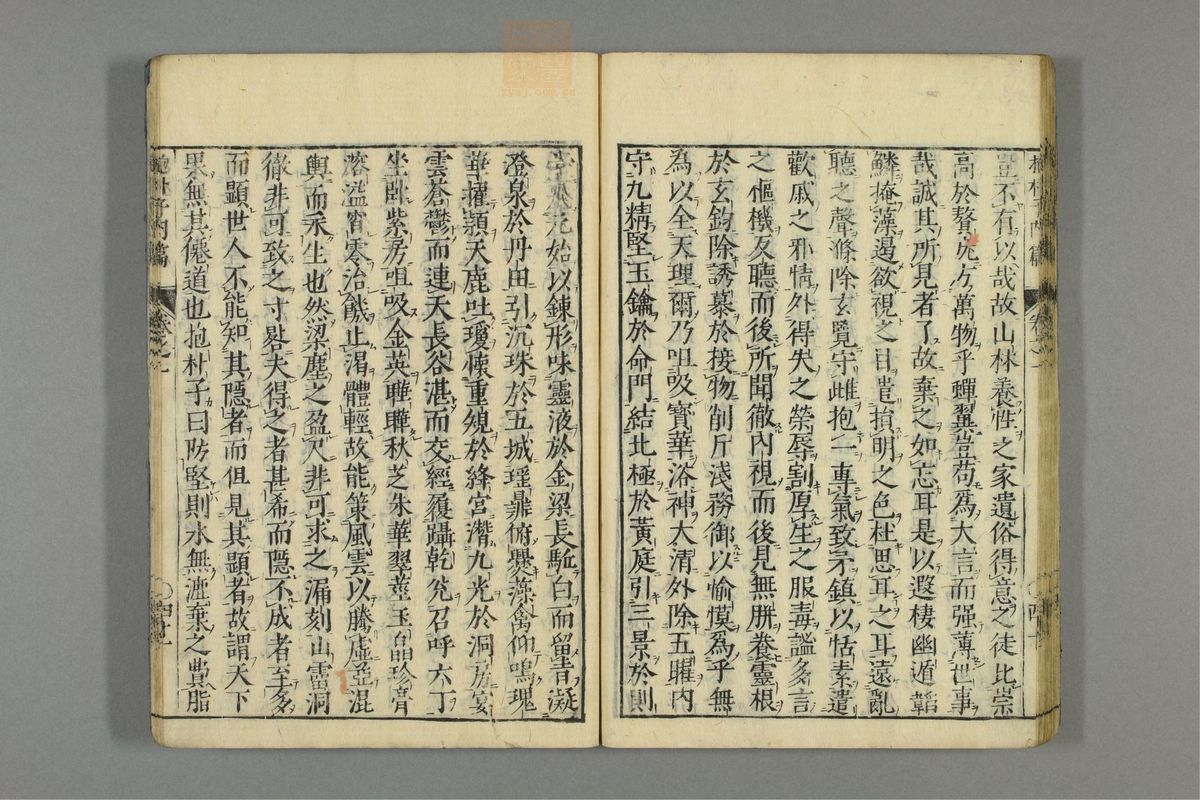 豈不有以哉故山林養性之家遺俗得意之徒比崇
高於贅疣方萬物乎蟬翼豈苟爲大言而强薄世事
哉誠其所見者了故棄之如忘耳是以遐棲幽遁韜
鱗掩藻遏欲視之目遣損明之色杜思耳之耳遠亂
聽之聲滌除玄覽守雌抱一專氣致柔鎮以恬素遣
歡戚之邪情外得失之榮辱割厚生之腊毒謐多言
之樞機反聽而後所聞徹內視而後見無朕養靈根
於玄鈞除誘慕於接物削斤淺務御以愉慔爲乎無
為以全天理爾乃咀吸寶華浴神太清外除五曜內
守九精堅玉鑰於命門結北極於黃庭引三景於
元始以鍊形味靈液於金梁長駈白而留青凝
澄泉於丹田引沉珠於五城瑤鼎俯爨藻禽仰鳴瑰
華擢潁天鹿吐瓊懷重規於絳宮潛九光於洞
雲蒼鬱而連天長谷湛而交經履躡乾兊召呼六丁
坐臥紫房咀吸金英曄曄秋芝朱華翠莖皛皛珍膏
溶溢霄零治飢止渴
體輕故能策風雲以騰虛
輿而永生也然梁塵之盈尺非可求之漏刻山霤洞
徹非可致之寸晷
得之者甚希而隱不成者至多
而顯世人不能知其隱者而但見其顯者故謂天下
果無其僊道也抱朴子曰防堅則水無漉棄之費脂
抱朴子內篇